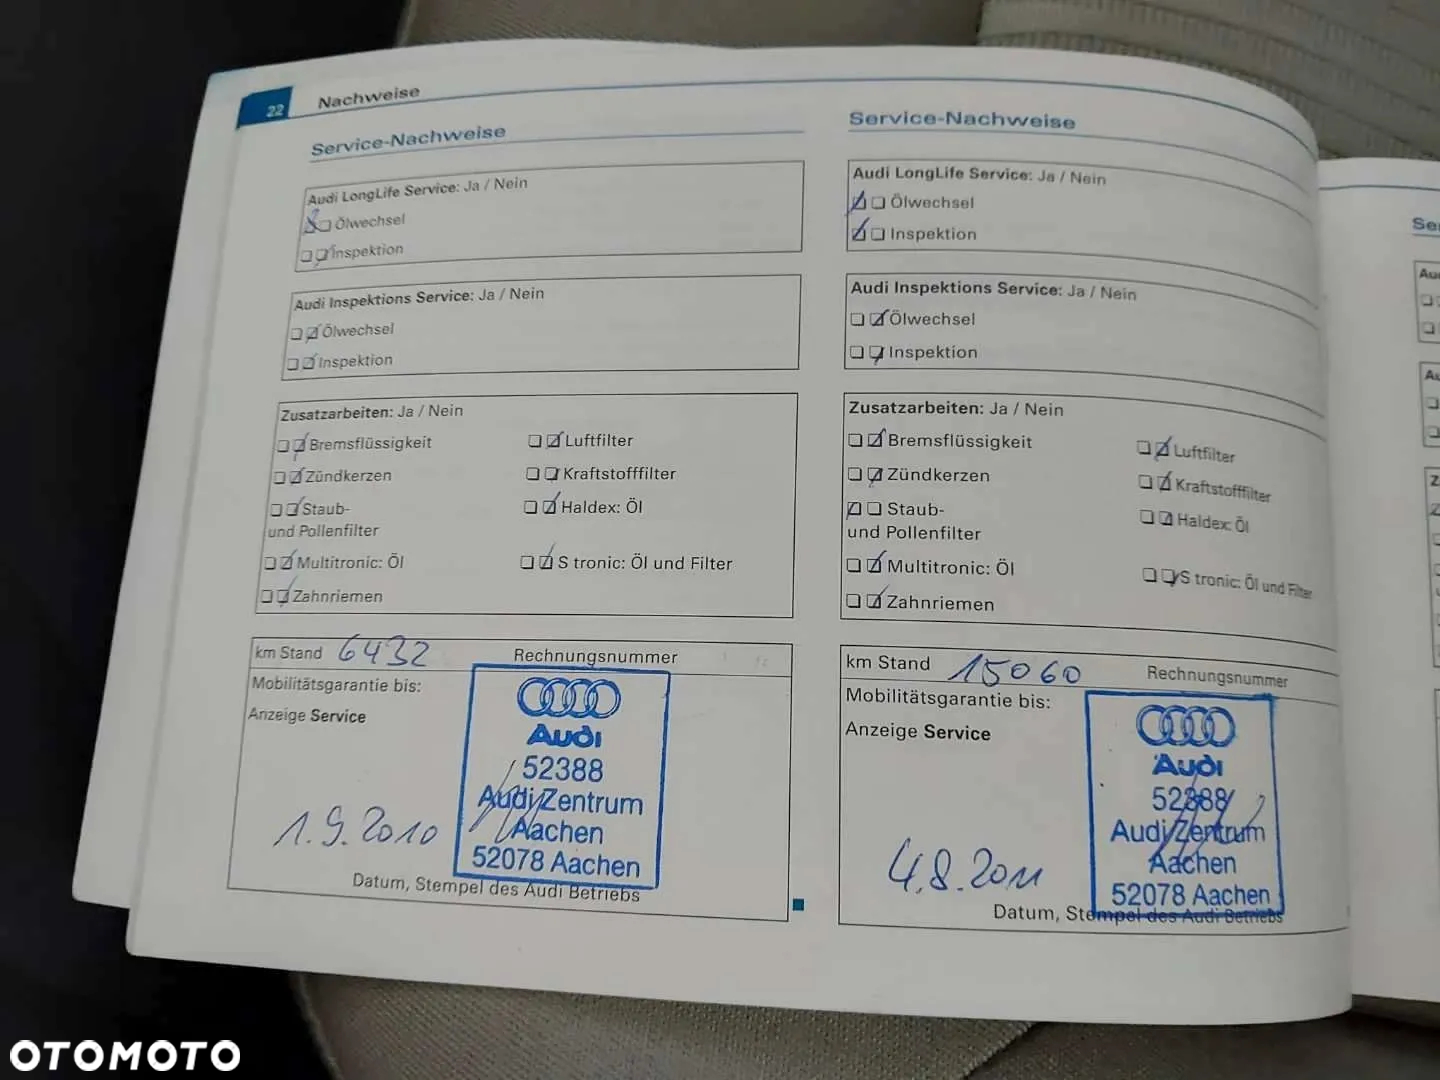 22 Nachweise
Service-Nachweise
Audi LongLife Service: Ja / Nein
Ölwechsel
Inspektion
Audi Inspektions Service: Ja / Nein
Ölwechsel
Inspektion
Zusatzarbeiten: Ja / Nein
Bremsflüssigkeit
Luftfilter
Zündkerzen
Kraftstofffilter
Staub-
und Pollenfilter
Haldex: Öl
Multitronic: Öl
S tronic: Öl und Filter
Zahnriemen
km Stand 6432
Rechnungsnummer
Mobilitätsgarantie bis:
Anzeige Service
Audi
52388
Audi Zentrum
Aachen
52078 Aachen
1.9.2010
Datum, Stempel des Audi Betriebs
Service-Nachweise
Audi LongLife Service: Ja / Nein
Ölwechsel
Inspektion
Audi Inspektions Service: Ja / Nein
Ölwechsel
Inspektion
Zusatzarbeiten: Ja / Nein
Bremsflüssigkeit
Luftfilter
Zündkerzen
Kraftstofffilter
Staub-
und Pollenfilter
Haldex: Öl
Multitronic: Öl
S tronic: Öl und Filter
Zahnriemen
km Stand 15060
Rechnungsnummer
Mobilitätsgarantie bis:
Anzeige Service
Audi
52388
Audi Zentrum
Aachen
52078 Aachen
4.8.2011
Datum, Stempel des Audi Betriebs
OTOMOTO